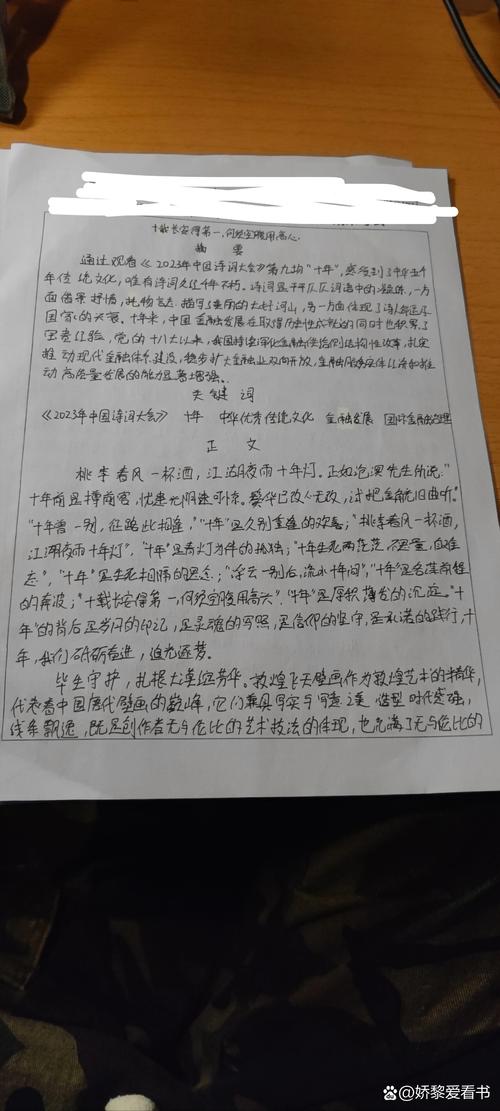 十载长安得第一,何须空腹用高心
摘 要
通过观看《2023年中国诗词大会》第九场“十年”,感受到了中华五千
年传统文化,唯有诗词久经千年不朽。诗词显于平仄词语中的短练,一方
面借景抒情,托物言志,描写了美丽的大好河山,另一方面体现了诗人命运与
国家的关系。十年来,中国金融发展在取得历史性成就的同时也积累了
宝贵经验,党的十八大以来,我国持续深化金融供给侧结构性改革,扎实
推动现代金融体系建设,稳步扩大金融业双向开放,金融服务实体经济和推
动高质量发展的能力显著增强。
关键词
《2023年中国诗词大会》 十年 中华优秀传统文化 金融发展 国际金融治理
正 文
桃李春风一杯酒,江湖夜雨十年灯。正如范溟先生所说:“
十年前是樽前客,忧患凋零老去,试把金觥旧曲听。”
“十年曾一别,征路此相逢”,“十年”是久别重逢的欢喜;“桃李春风一杯酒,
江湖夜雨十年灯”,“十年”是青灯为伴的孤独;“十年生死两茫茫,不思量,自难
忘”,“十年”是生死相隔的思念;“浮云一别后,流水十年间”,“十年”是各谋前程
的奔波;“十载长安得第一,何须空腹用高心”,“十年”是厚积薄发的沉淀。“十
年”的背后是岁月的印记,是灵魂的写照,是信仰的坚守,是承诺的践行,十
年,我们砥砺奋进,追光逐梦。
毕生守护,扎根大漠绽芳华。敦煌飞天壁画作为敦煌艺术的精华,
代表着中国历代壁画的巅峰,它们兼具写实与写意之美 造型时代感强,
线条飘逸,既是创作者无与伦比的艺术技法的体现,也充满了无与伦比的
娇黎爱看书